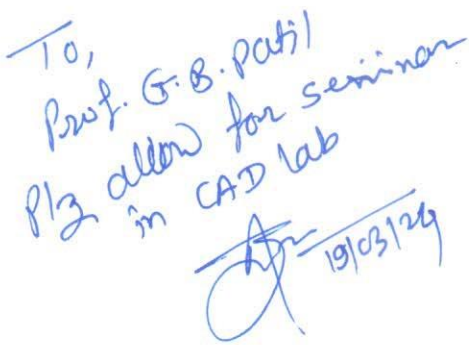 To,
Prof. G.B. Patil
Plz allow for seminar
in CAD lab
19/03/24